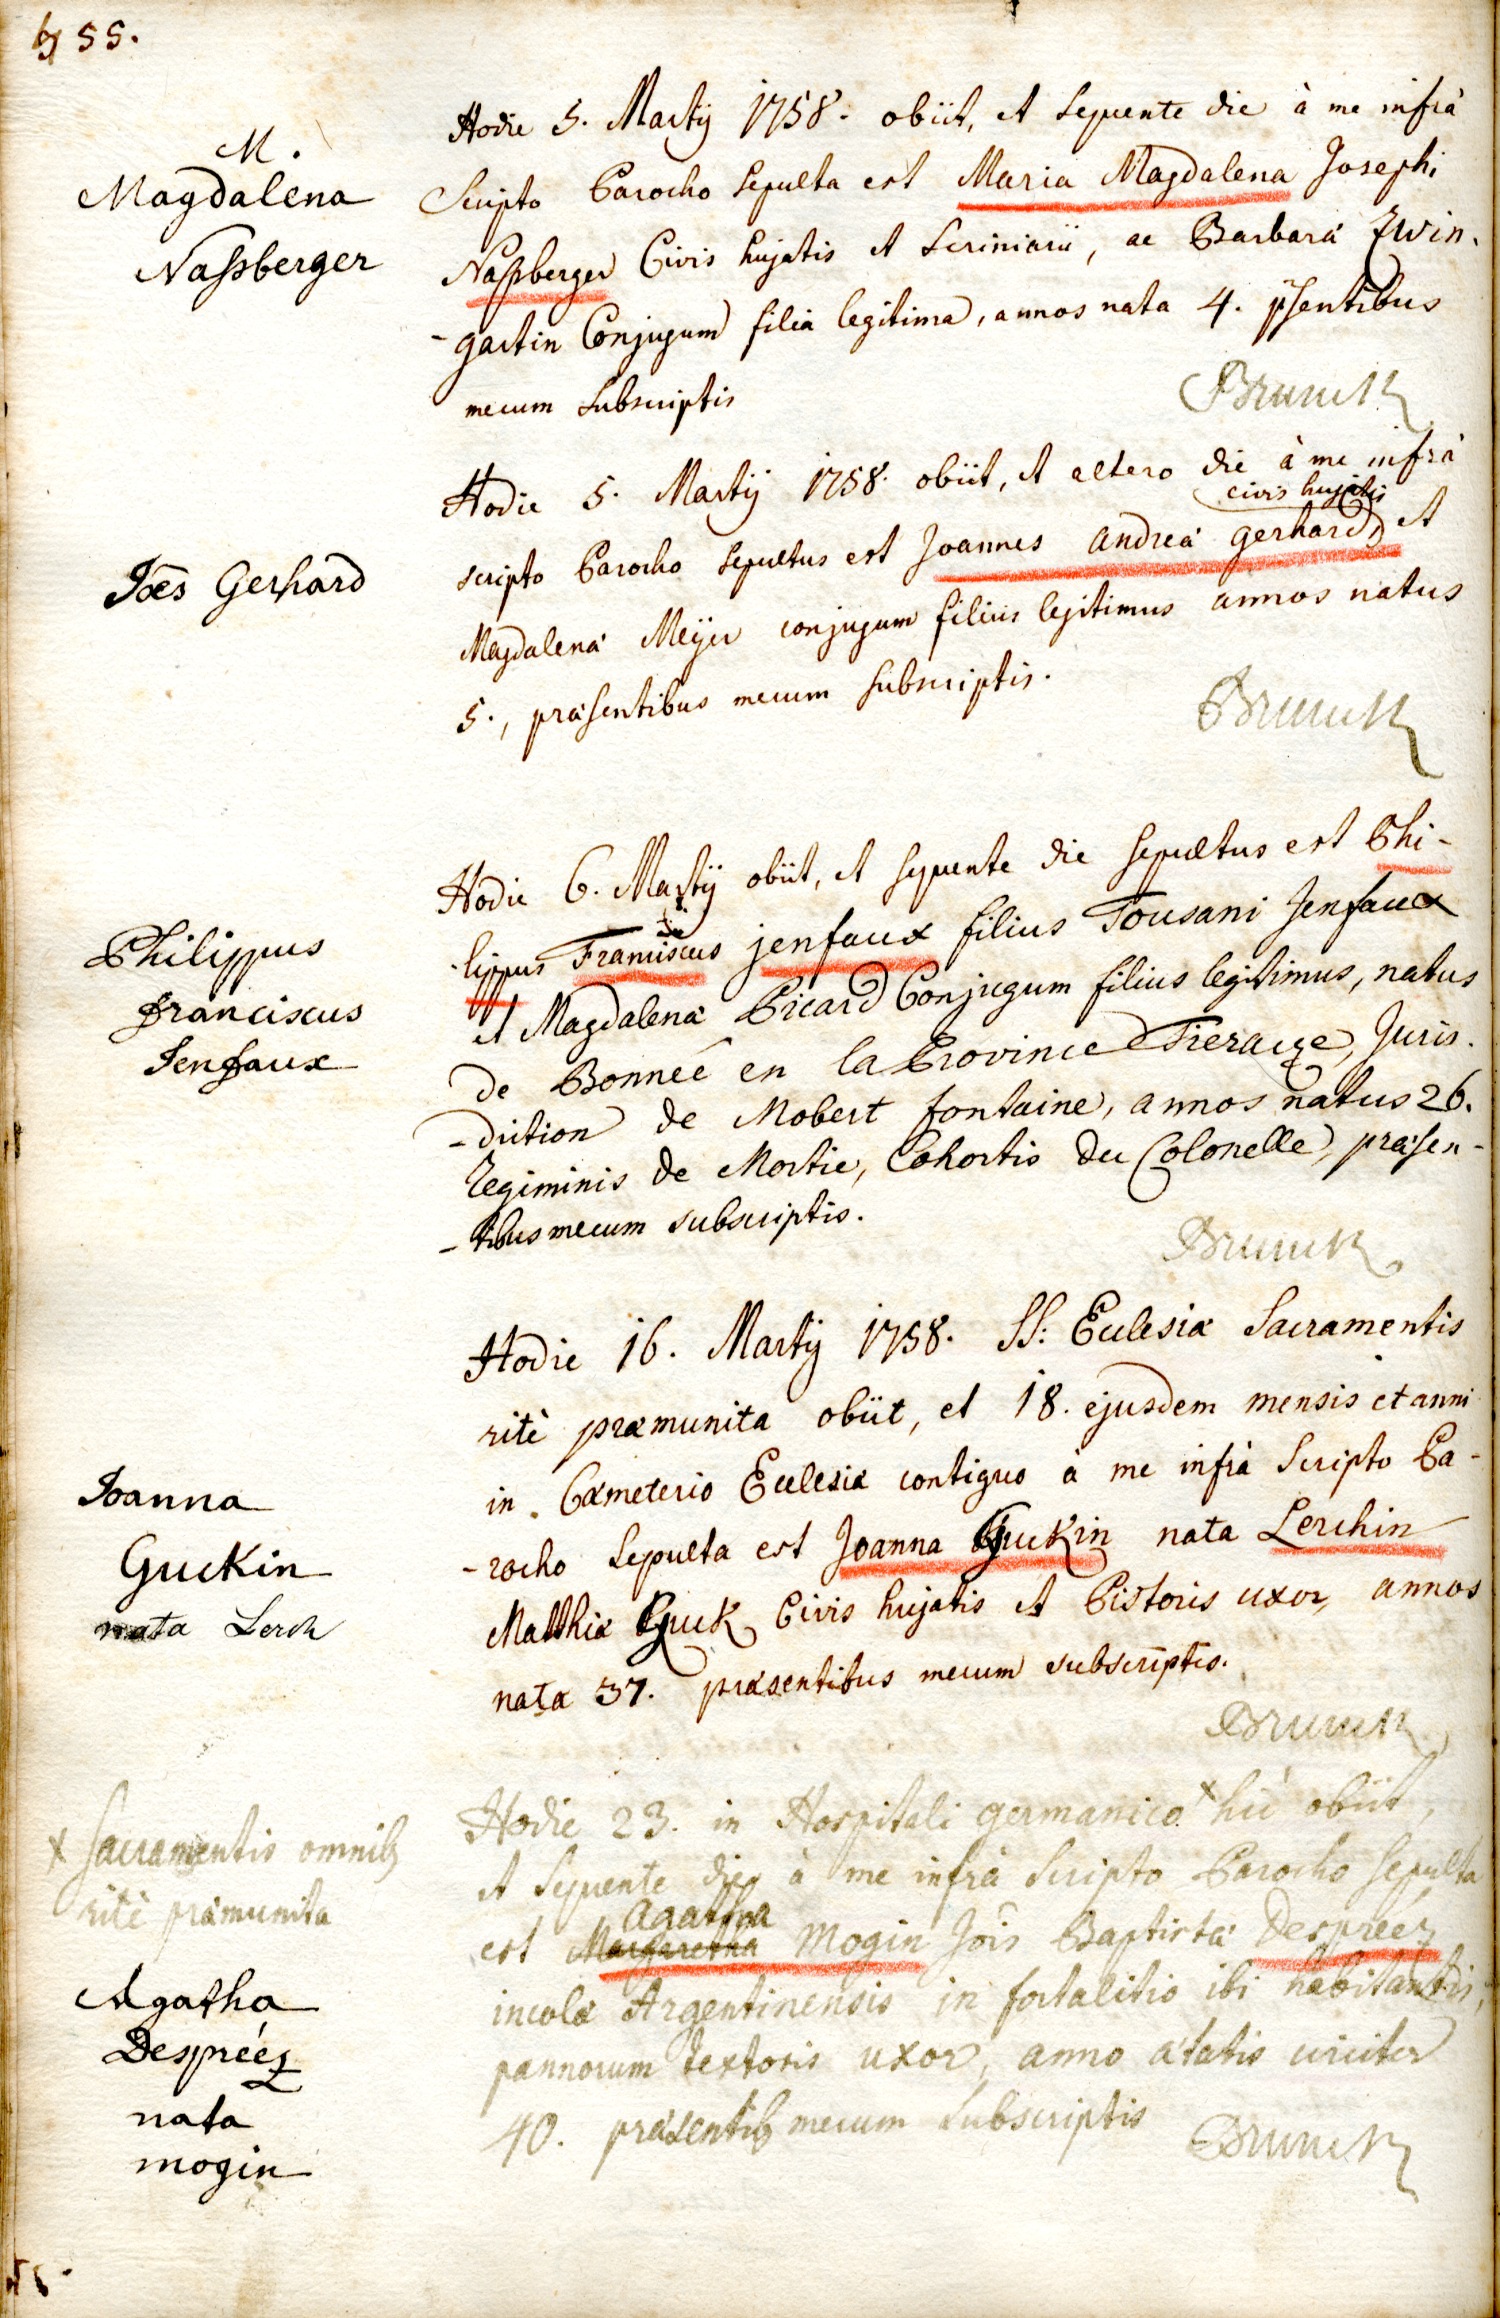 55.
M.
Magdalena
Nassberger
Hodie 5. Martij 1758. obiit, et sequente die à me infrà
Scripto Parocho sepulta est Maria Magdalena Josephi
Nassberger Civis hujatis et Scriniarii, ac Barbarà Zwin-
-gartin Conjugum filia legitima, annos nata 4. pñsentibus
mecum Subscriptis
Brunck
Joês Gerhard
Hodie 5. Martij 1758. obiit, et altero die à me infrà
civis hujatis
scripto Parocho sepultus est Joannes Andreà Gerhard et
Magdalenà Meÿer conjugum filius legitimus annos natus
5., præsentibus mecum subscriptis.
Brunck
Philippus
Franciscus
Jenfaux
Hodie 6. Martij obiit, et sequente die sepultus est Phi-
-lippus Franciscus jenfaux filius Tousani Jenfaux
et Magdalenà Picard Conjugum filius legitimus, natus
de Bonneé en la Province Tierauge, Juris-
-diction de Mobert fontaine, annos natus 26.
Regiminis de Mortie, Cohortis du Colonelle, præsen-
-tibus mecum subscriptis.
Brunck
Joanna
Guckin
nata Lerch
Hodie 16. Martij 1758. SS: Ecclesiæ Sacramentis
ritè præmunita obiit, et 18. ejusdem mensis et anni
in Cæmeterio Ecclesiæ contiguo à me infrà Scripto Pa-
-rocho sepulta est Joanna Guckin nata Lerchin
Matthiæ Guck Civis hujatis et Pistoris uxor, annos
nata 37. præsentibus mecum subscriptis.
Brunck
x Sacramentis omnib9
ritè præmunita
Agatha
Despréez
nata
mogin
Hodie 23. in Hospitali germanico x hìc obiit,
et Sequente die à me infrà Scripto Parocho sepulta
Agatha
est Margaretha Mogin Jois Baptistæ Despréez
incolæ Argentinensis in fortalitio ibi habitantis,
pannorum textoris uxor, anno ætatis circiter
40. præsentib9 mecum Subscriptis
Brunck